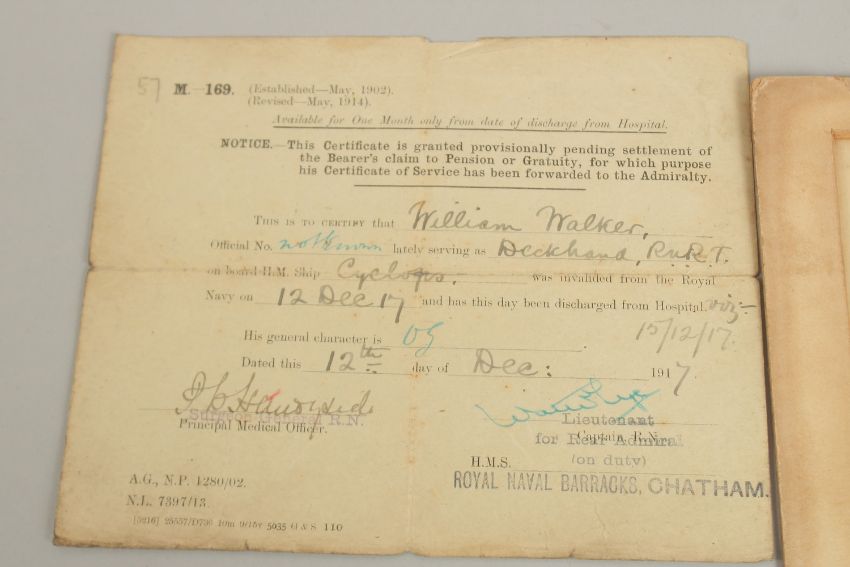 57 M.—169. (Established—May, 1902).
(Revised—May, 1914).
Available for One Month only from date of discharge from Hospital.
NOTICE.—This Certificate is granted provisionally pending settlement of
the Bearer's claim to Pension or Gratuity, for which purpose
his Certificate of Service has been forwarded to the Admiralty.
THIS IS TO CERTIFY that William Walker,
Official No. not known lately serving as Deckhand, R.N.R.T.
on board H.M. Ship Cyclops. was invalided from the Royal
Navy on 12 Dec 17 and has this day been discharged from Hospital. viz—
15/12/17.
His general character is VG.
Dated this 12th day of Dec: 1917.
Surgeon General R.N.
Principal Medical Officer.
Lieutenant
Captain R.N.
for Rear Admiral
(on duty)
H.M.S.
ROYAL NAVAL BARRACKS, CHATHAM.
A.G., N.P. 1280/02.
N.L. 7397/13.
[5216] 25537/D736 10m 9/15v 5035 G & S 110